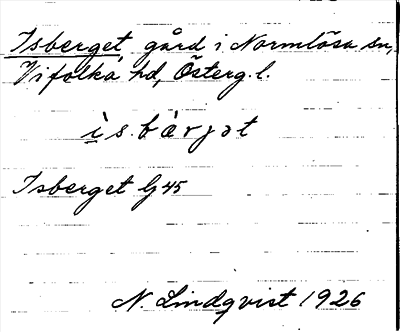 Isberget, gård i Normlösa sn,
Vifolka hd, Österg. l.
ìs.bàrjət
Isberget Gj 45
N. Lindqvist 1926